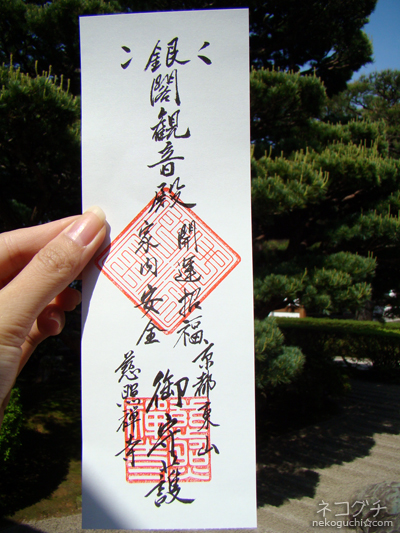 銀閣観音殿
開運招福
家内安全
京都東山
慈照禅寺
御守護
ネコグチ
nekoguchi☆com